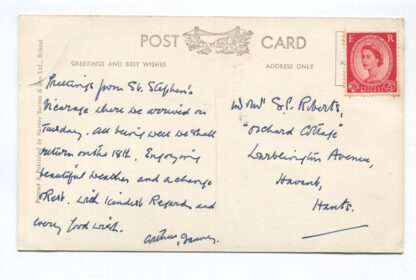 POST CARD
GREETINGS AND BEST WISHES
ADDRESS ONLY
Printed & Published by Harvey Barton & Son Ltd., Bristol
Greetings from St. Stephen's
Vicarage where we arrived on
Tuesday. All being well we shall
return on the 18th. Enjoying
beautiful weather and a change
& Rest. With kindest Regards and
every good wish.
Arthur
E R
2½D
S.C. Roberts,
"Orchard Cottage"
Warblington Avenue,
Havant,
Hants.